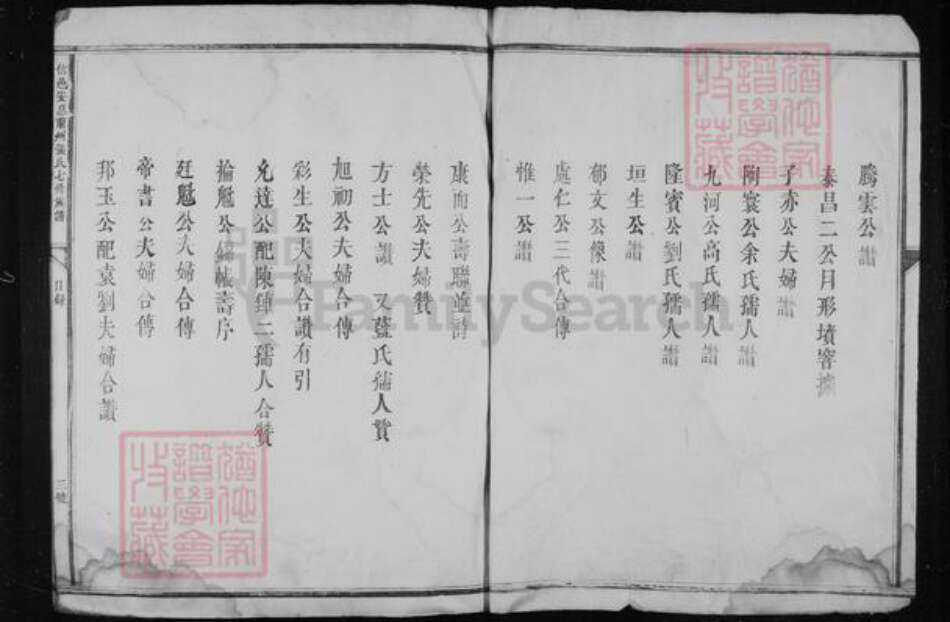 騰雲公讃
泰昌二公月形墳窨據
子亦公夫婦讃
陶寰公余氏孺人讃
九河公高氏孺人讃
隆賓公劉氏孺人讃
垣生公讃
郁文公像讃
處仁公三代合傳
惟一公讃
康而公壽聯並詩
榮先公夫婦贊
方士公讃 又藍氏孺人贊
旭初公夫婦合傳
彩生公夫婦合讃有引
允達公配陳鍾二孺人合贊
掄魁公錦帳壽序
廷魁公夫婦合傳
帝書公夫婦合傳
邦玉公配袁劉夫婦合讃
張氏七修族譜
目錄
三號
譜學會
收藏
FamilySearch
譜學會
收藏